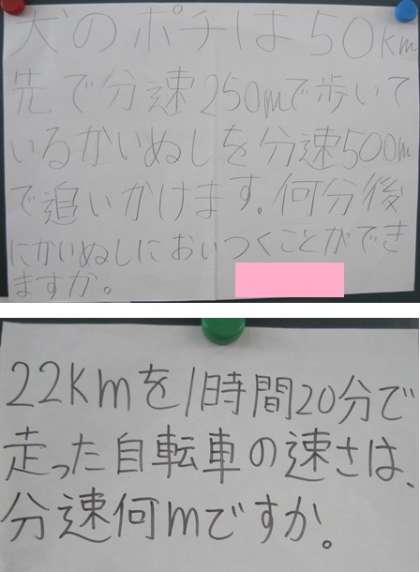 犬のポチは50km
先で分速250mで歩いて
いるかいぬしを分速500m
で追いかけます。何分後
にかいぬしにおいつくことができ
ますか。
22kmを1時間20分で
走った自転車の速さは、
分速何mですか。